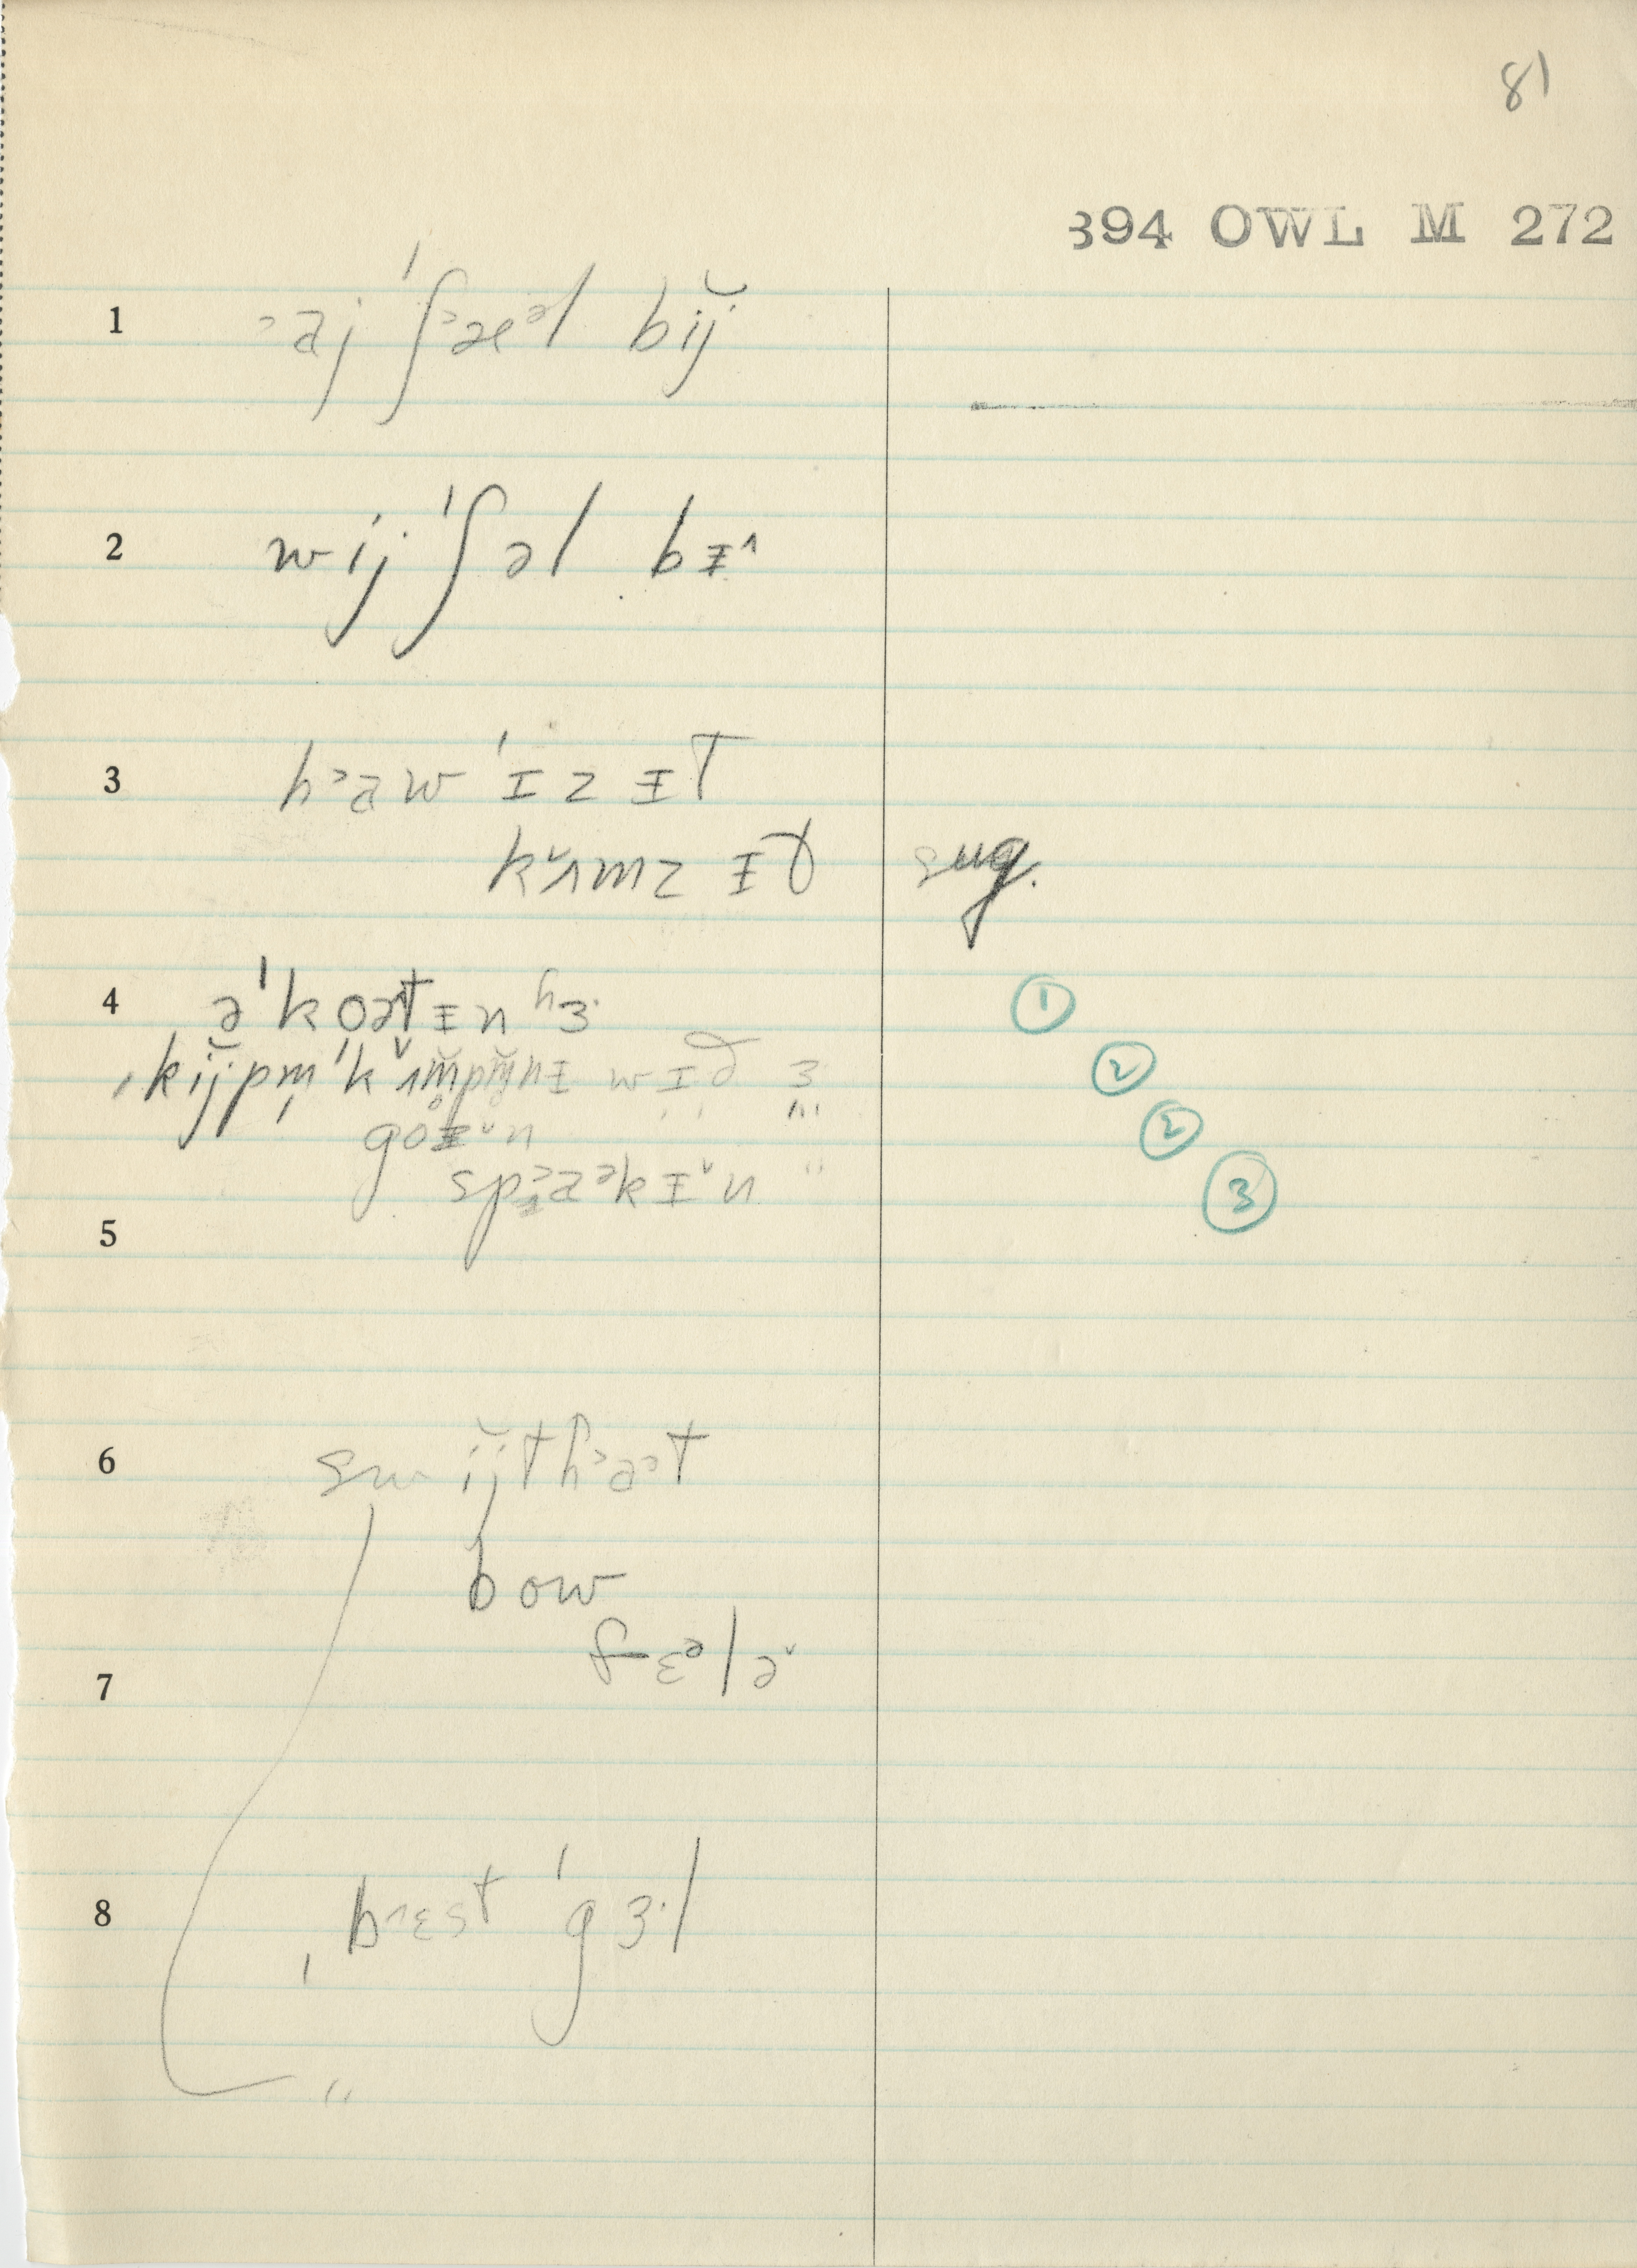 81
394 OWL M 272
1 ᵓa̵j ˈʃᵓæᵊl bĭj
2 wij ˈʃəl bɪ̵^
3 hᵓa̵w ˈɪz ɪ̵t
kˇʌmz ɪ̵t̬ sug.
4 əˈkoət ɪ̵n ʰɜ· ①
ˌkĭjpm̩ ˈkˇʌmpm̩nɪ̵ wɪð ɜ ②
goɪ̵ˇn ②
spᵓa̵ᵊkɪ̵ˇn " ③
5
6 swĭjthᵓa̵ᵓt
bow
fɛᵊləˇ
7
8 ˌb^ɛst ˈgɜ·l
"